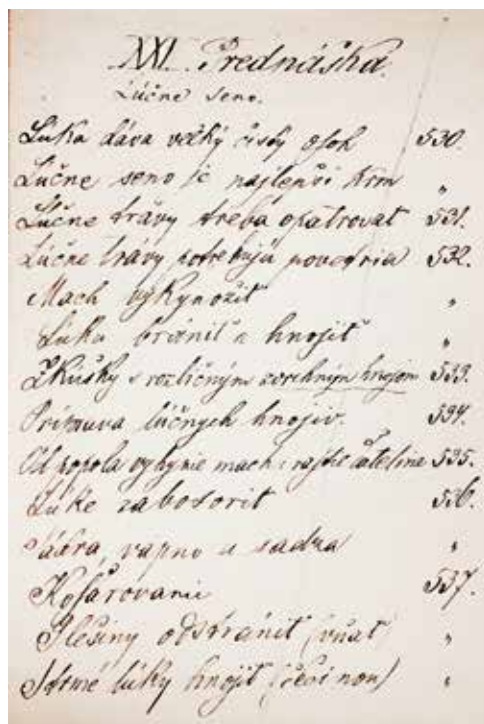 XXI. Prednáška.
Lúčne seno.
Luka dáva veľký čistý osoh 530.
Lúčne seno je najlepší krm "
Lúčne trávy treba opatrovať 531.
Lúčne trávy potrebujú povetria 532.
Mach vykynožiť "
Luka brániť a hnojiť "
Zkúšky s rozličným zvrchným hnojom 533.
lúčnych hnojiv. 534.
Od popola vyhynie mach i rastie ďatelina 535.
Luke zabosoriť 536.
Sádra, vapno a sadza "
Košárovanie 537.
Plesiny odstrániť (vňať) "
Strmé lúky hnojiť "